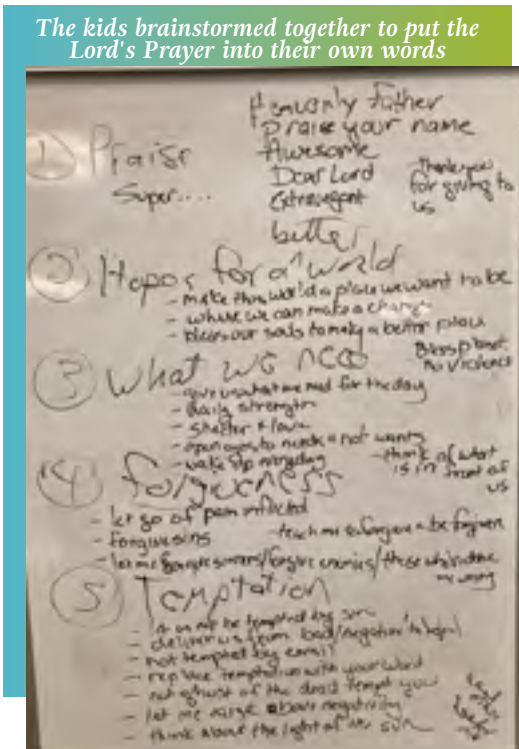 The kids brainstormed together to put the
Lord's Prayer into their own words
Heavenly Father
praise your name
1) Praise
Awesome
Dear Lord
Thank you
for giving to
us
Super....
better
2 Hopes for a world
- make this world a place we want to be
- where we can make a change
- bless our souls to make a better place
Bless planet
no violence
3 What we need
- give us what we need for the day
- daily strength
- shelter + love
- open eyes to needs + not wants
- wake up everyday
- think of what
is in front of
us
4 Forgiveness
- let go of pain inflicted
- forgive sins
- teach me to forgive + be forgiven
- let me forgive sinners/forgive enemies/those who've done
me wrong
5 Temptation
- let us not be tempted by sin
- deliver us from bad/negative
- not tempted by
- replace temptation with your word
- not of the dead tempt you
- let me rise above negativity
- think about the light of the sun